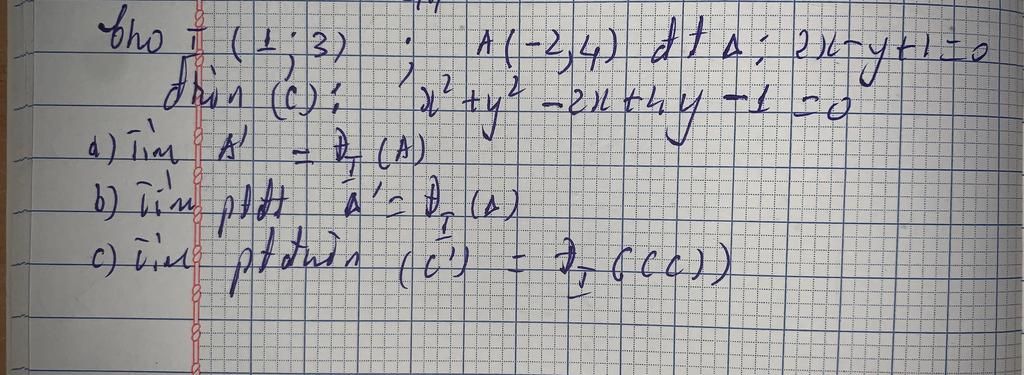 Cho I (1; 3) ; A(-2,4) dt Δ: 2x-y+1=0
dtròn (C): x² + y² - 2x + 4y - 1 = 0
a) Tìm A' = Đ_I (A)
b) Tìm ptđt Δ' = Đ_I (Δ)
c) Tìm ptđtròn (C') = Đ_I ((C))